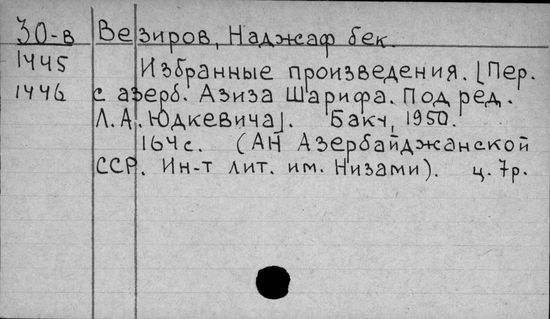 30-в Везиров, Наджаф бек.
1445 Избранные произведения. [Пер.
1446 с азерб. Азиза Шарифа. Под ред.
Л.А. Юдкевича]. Баку, 1950.
164с. (АН Азербайджанской
ССР. Ин-т лит. им. Низами). ц. 7р.